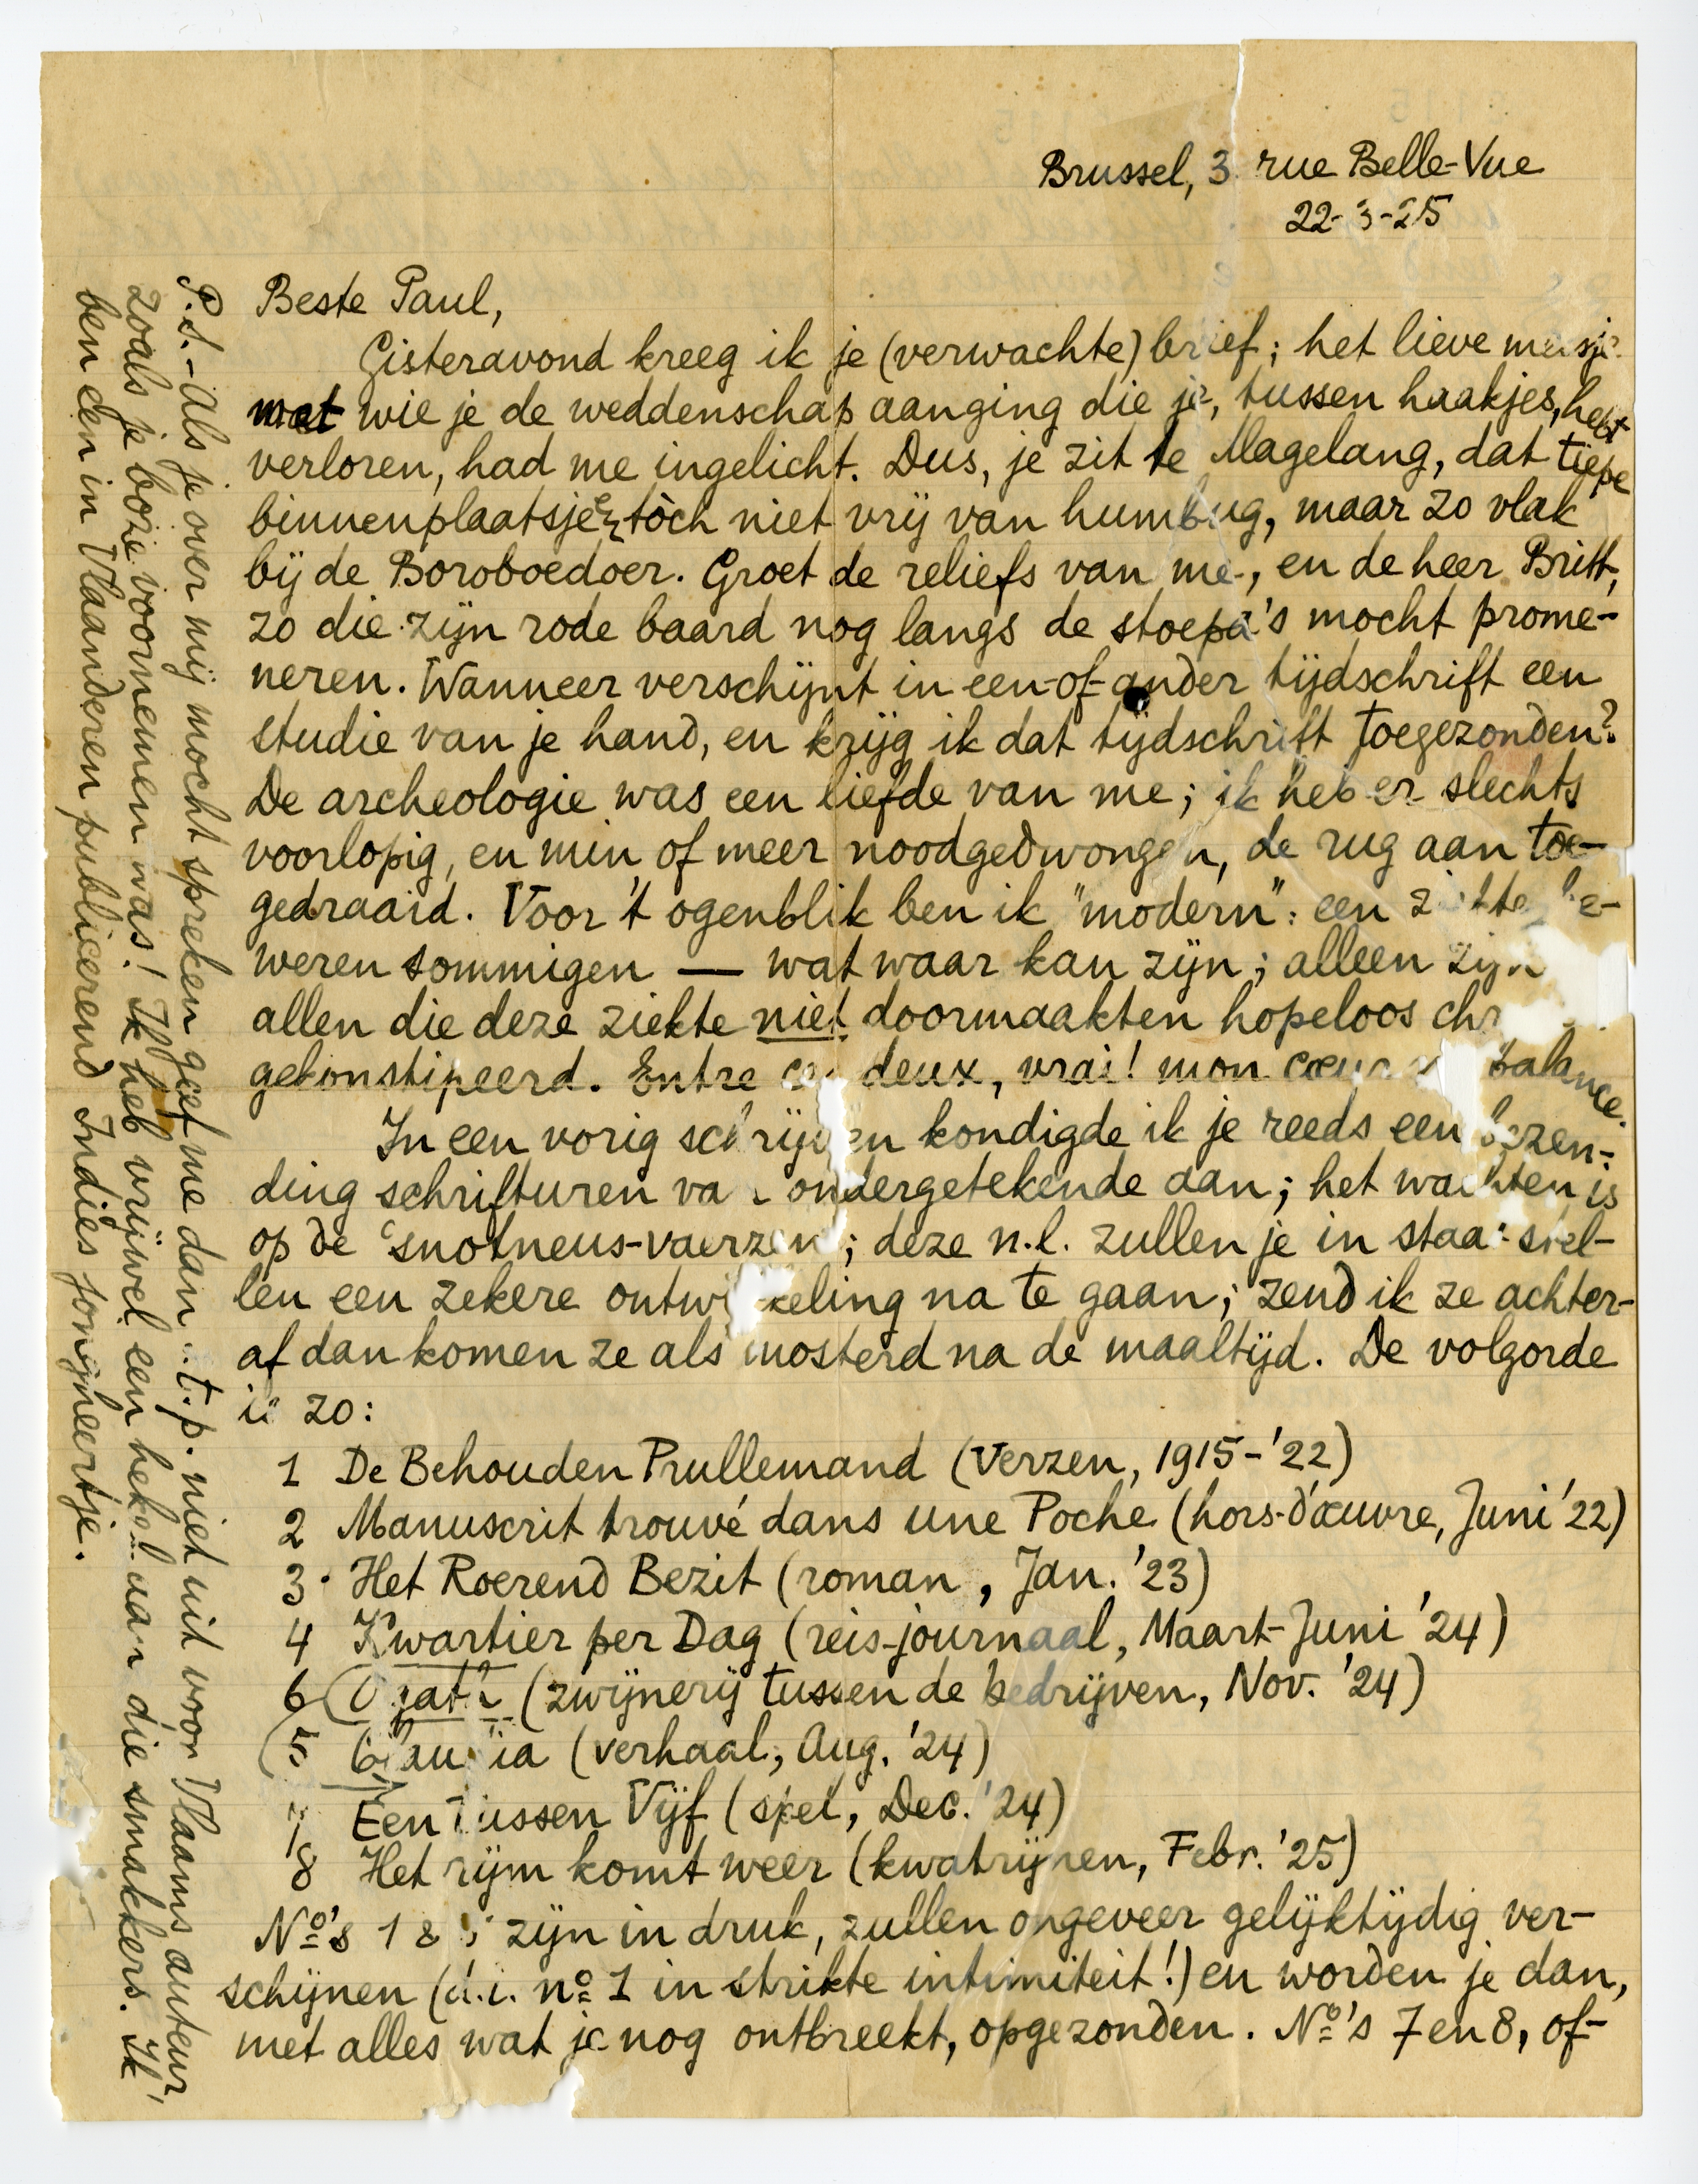 Brussel, 3 rue Belle-Vue
22-3-25
Beste Paul,
Gisteravond kreeg ik je (verwachte) brief; het lieve meisje
met wie je de weddenschap aanging die je, tussen haakjes, hebt
verloren, had me ingelicht. Dus, je zit te Magelang, dat tiepe
binnenplaatsje, tòch niet vrij van humbug, maar zo vlak
bij de Boroboedoer. Groet de reliefs van me, en de heer Britt,
zo die zijn rode baard nog langs de stoepa's mocht prome-
neren. Wanneer verschijnt in een-of-ander tijdschrift een
studie van je hand, en krijg ik dat tijdschrift toegezonden?
De archeologie was een liefde van me; ik heb er slechts
voorlopig, en min of meer noodgedwongen, de rug aan toe-
gedraaid. Voor 't ogenblik ben ik "modern": een ziekte be-
weren sommigen — wat waar kan zijn; alleen zijn
allen die deze ziekte niet doormaakten hopeloos
gekonstipeerd. Entre ces deux, vrai! mon cœur balance.
In een vorig schrijven kondigde ik je reeds een bezen-
ding schrifturen van ondergetekende aan; het wachten is
op de snotneus-vaerzen; deze n.l. zullen je in staat stel-
len een zekere ontwikkeling na te gaan; zend ik ze achter-
af dan komen ze als mosterd na de maaltijd. De volgorde
is zo:
1 De Behouden Prullemand (Verzen, 1915-'22)
2 Manuscrit trouvé dans une Poche (hors-d'œuvre, Juni '22)
3. Het Roerend Bezit (roman, Jan. '23)
4 Kwartier per Dag (reis-journaal, Maart-Juni '24)
6 (zwijnerij tussen de bedrijven, Nov. '24)
5 Claudia (verhaal, Aug. '24)
7 Een Tussen Vijf (spel, Dec. '24)
8 Het rijm komt weer (kwatrijnen, Febr. '25)
No's 1 & zijn in druk, zullen ongeveer gelijktijdig ver-
schijnen (d.i. no 1 in strikte intimiteit!) en worden je dan,
met alles wat je nog ontbreekt, opgezonden. No's 7 en 8, of-
P.S. - Als je over mij mocht spreken geef me dan s.t.p. niet uit voor Vlaams auteur,
zoals je boze voornemen was! Ik heb vrijwel een hekel aan die smakkers. Ik
ben een in Vlaanderen publicerend Indies jonijheertje.